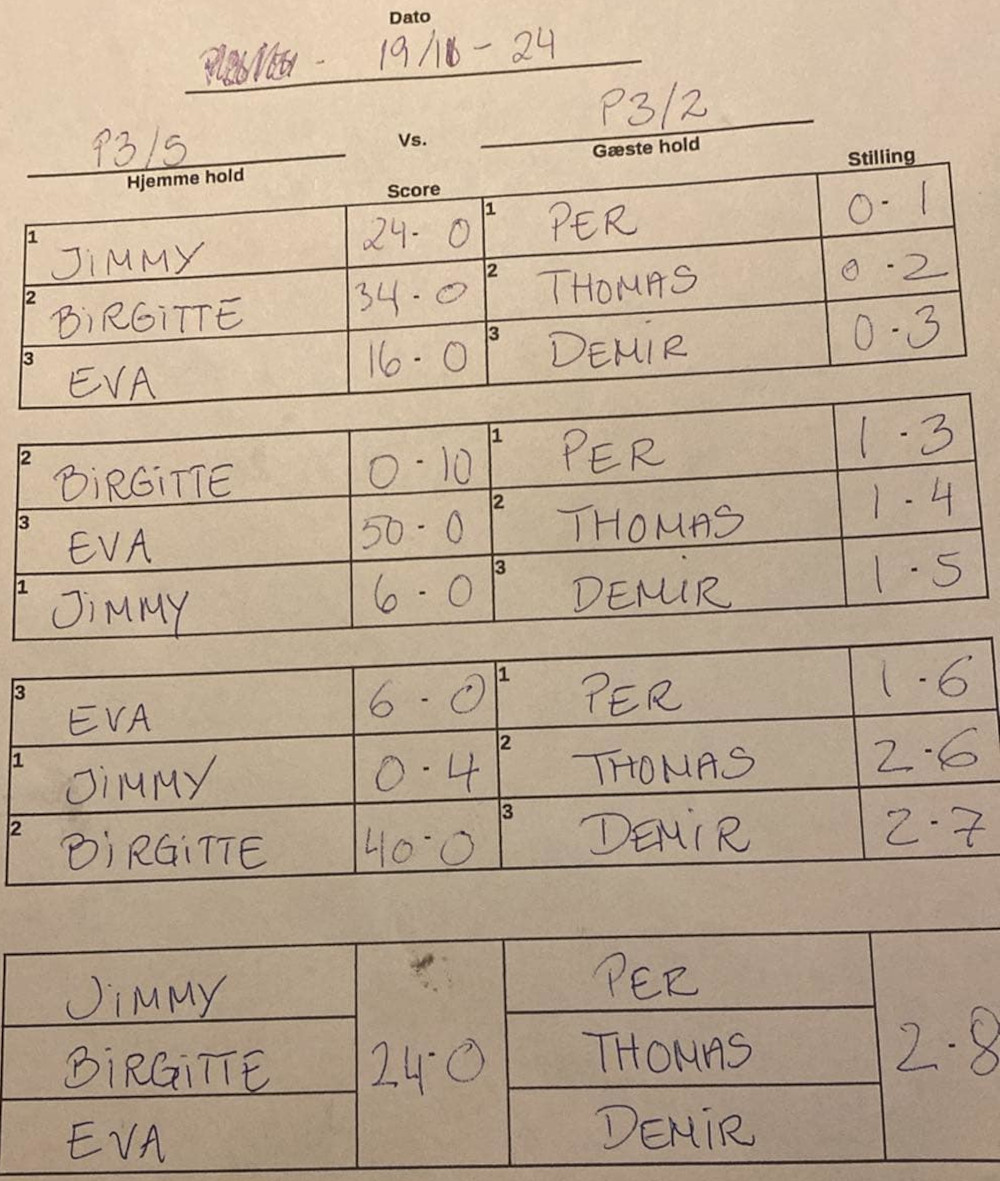 Dato
19/11 - 24
P3/5 Vs. P3/2
Hjemme hold Gæste hold
Score Stilling
1 JiMMY 24 - 0 1 PER 0 - 1
2 BiRGiTTE 34 - 0 2 THOMAS 0 - 2
3 EVA 16 - 0 3 DEMiR 0 - 3
2 BiRGiTTE 0 - 10 1 PER 1 - 3
3 EVA 50 - 0 2 THOMAS 1 - 4
1 JiMMY 6 - 0 3 DEMiR 1 - 5
3 EVA 6 - 0 1 PER 1 - 6
1 JiMMY 0 - 4 2 THOMAS 2 - 6
2 BiRGiTTE 40 - 0 3 DEMiR 2 - 7
JiMMY PER
BiRGiTTE 24 - 0 THOMAS 2 - 8
EVA DEMiR